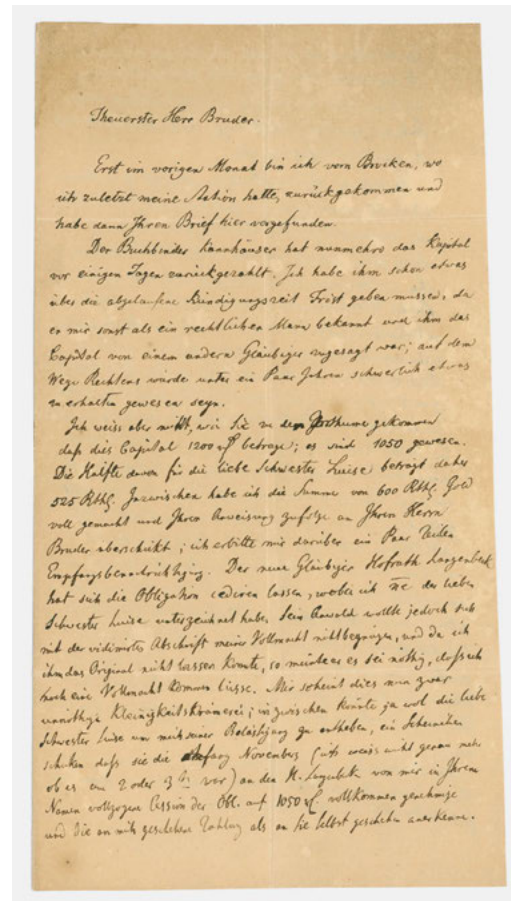 Theuerster Herr Bruder.
Erst im vorigen Monat bin ich vom Brocken, wo
ich zuletzt meine Station hatte, zurückgekommen und
habe dann Ihren Brief hier vorgefunden.
Der Buchbinder hat nunmehro das Kapital
vor einigen Tagen zurückgezahlt. Ich habe ihm schon etwas
über die abgelaufene Kündigungszeit Frist geben müssen, da
er mir sonst als ein rechtlicher Mann bekannt und ihm das
Capital von einem andern Gläubiger zugesagt war; auf dem
Wege Rechtens würde unter ein Paar Jahren schwerlich etwas
zu erhalten gewesen seyn.
Ich weiss aber nicht, wie Sie zu dem Irrthume gekommen
daß dies Capital 1200 betrage; es sind 1050 gewesen.
Die Hälfte davon für die liebe Schwester Luise beträgt daher
525 Rthlr. Inzwischen habe ich die Summe von 600 Rthlr. Gold
voll gemacht und Ihrer Anweisung zufolge an Ihren Herrn
Bruder überschickt; ich erbitte mir darüber ein Paar Zeilen
Empfangsbenachrichtigung. Der neue Gläubiger Hofrath Langenbeck
hat sich die Obligation cediren lassen, wobei ich der lieben
Schwester Luise unterzeichnet habe. Sein Anwald wollte jedoch sich
mit der vidimirten Abschrift meiner Vollmacht nicht begnügen, und da ich
ihm das Original nicht lassen konnte, so meinte er es sei nöthig, dass ich
noch eine Vollmacht kommen liesse. Mir scheint dies nun zwar
unnöthige Kleinigkeitskrämerei; inzwischen könnte ja wol die liebe
Schwester Luise um mich einer Belästigung zu entheben, ein
schicken daß sie die Anfang Novembers (ich weiss nicht genau mehr
ob es am 2 oder 3 war) an den H. von mir in Ihrem
Namen vollzogene Cession der Obl. auf 1050 vollkommen genehmige
und die an mich geschehene Zahlung als an sie selbst geschehen anerkenne.